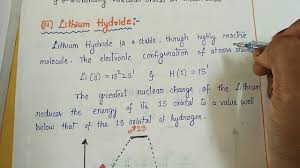 (iii) Lithium Hydride:-
Lithium Hydride is a stable, though highly reactive
molecule. The electronic configuration of atoms
Li (3) = 1s² 2s¹ & H (1) = 1s¹
The greatest nuclear charge of the Lithium
reduces the energy of its 1S orbital to a value well
below that of the 1S orbital of hydrogen.